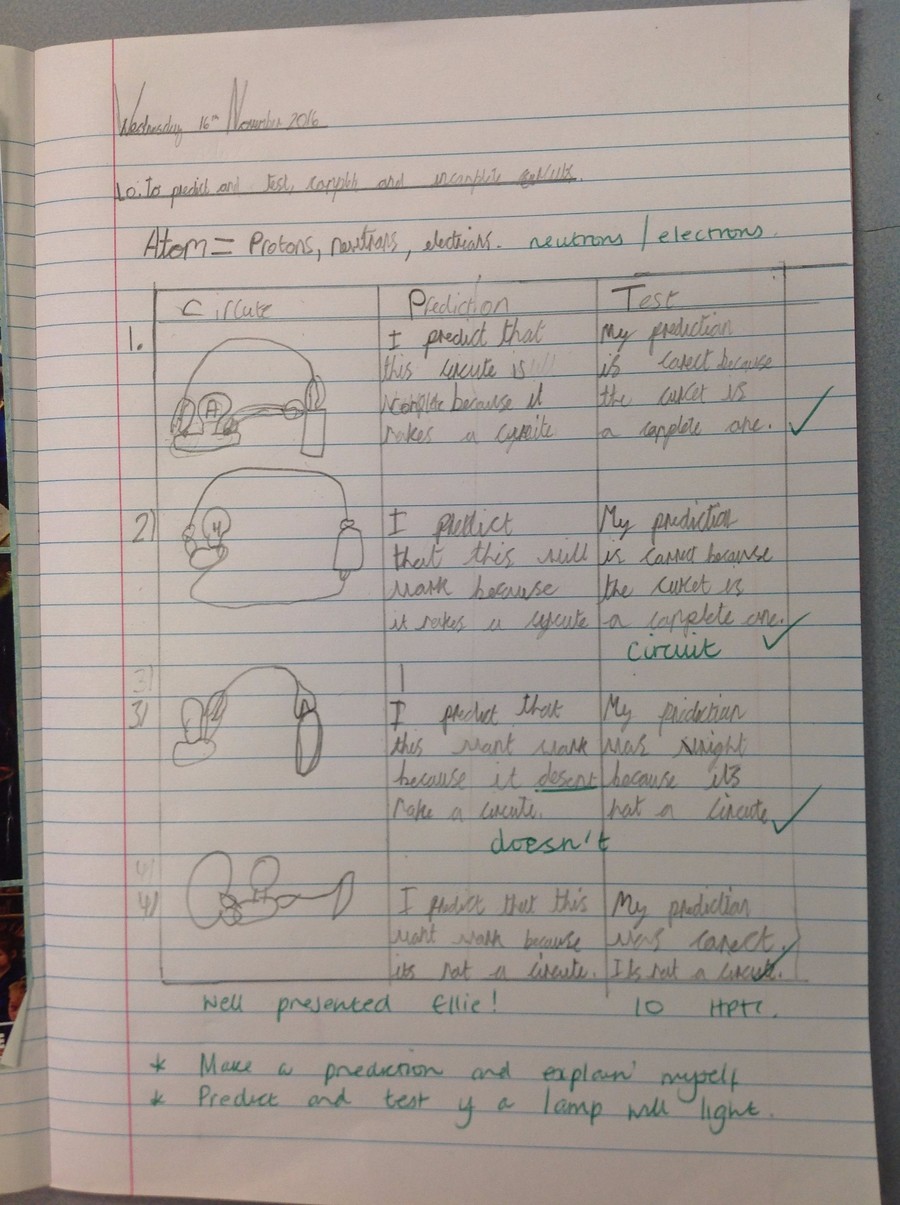 Wednesday 16th November 2016
Lo: To predict and test, complete and incomplete circuits.
Atom = Protons, newtrons, electrians. neutrons / electrons.
Circute Prediction Test
1. I predict that My prediction
this circute is is carect because
complete because it the cuket is
makes a cyrcite a complete one.
2) I predict My prediction
that this will is carrect because
wark because the cuket is
it makes a cycute a complete one.
circuit
3)
3) I predict that My prediction
this want wark was wright
because it desent because its
make a circute. not a circute
doesn't
4)
4) I predict that this My prediction
want wark because was carect.
its not a circute. Its not a circute.
Well presented Ellie! 10
* Make a prediction and explain myself
* Predict and test if a lamp will light.